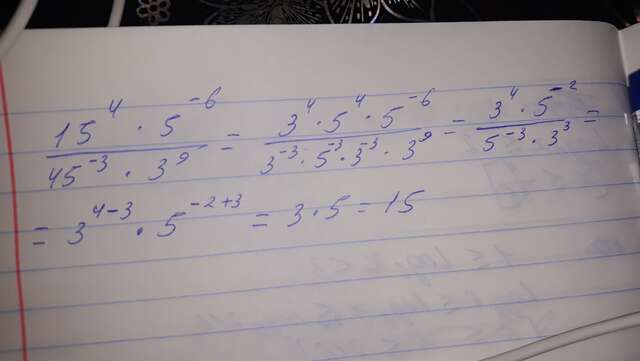 15⁴ · 5⁻⁶ / 45⁻³ · 3⁹ = 3⁴ · 5⁴ · 5⁻⁶ / 3⁻³ · 5⁻³ · 3⁻³ · 3⁹ = 3⁴ · 5⁻² / 5⁻³ · 3³ =
= 3⁴⁻³ · 5⁻²⁺³ = 3 · 5 = 15